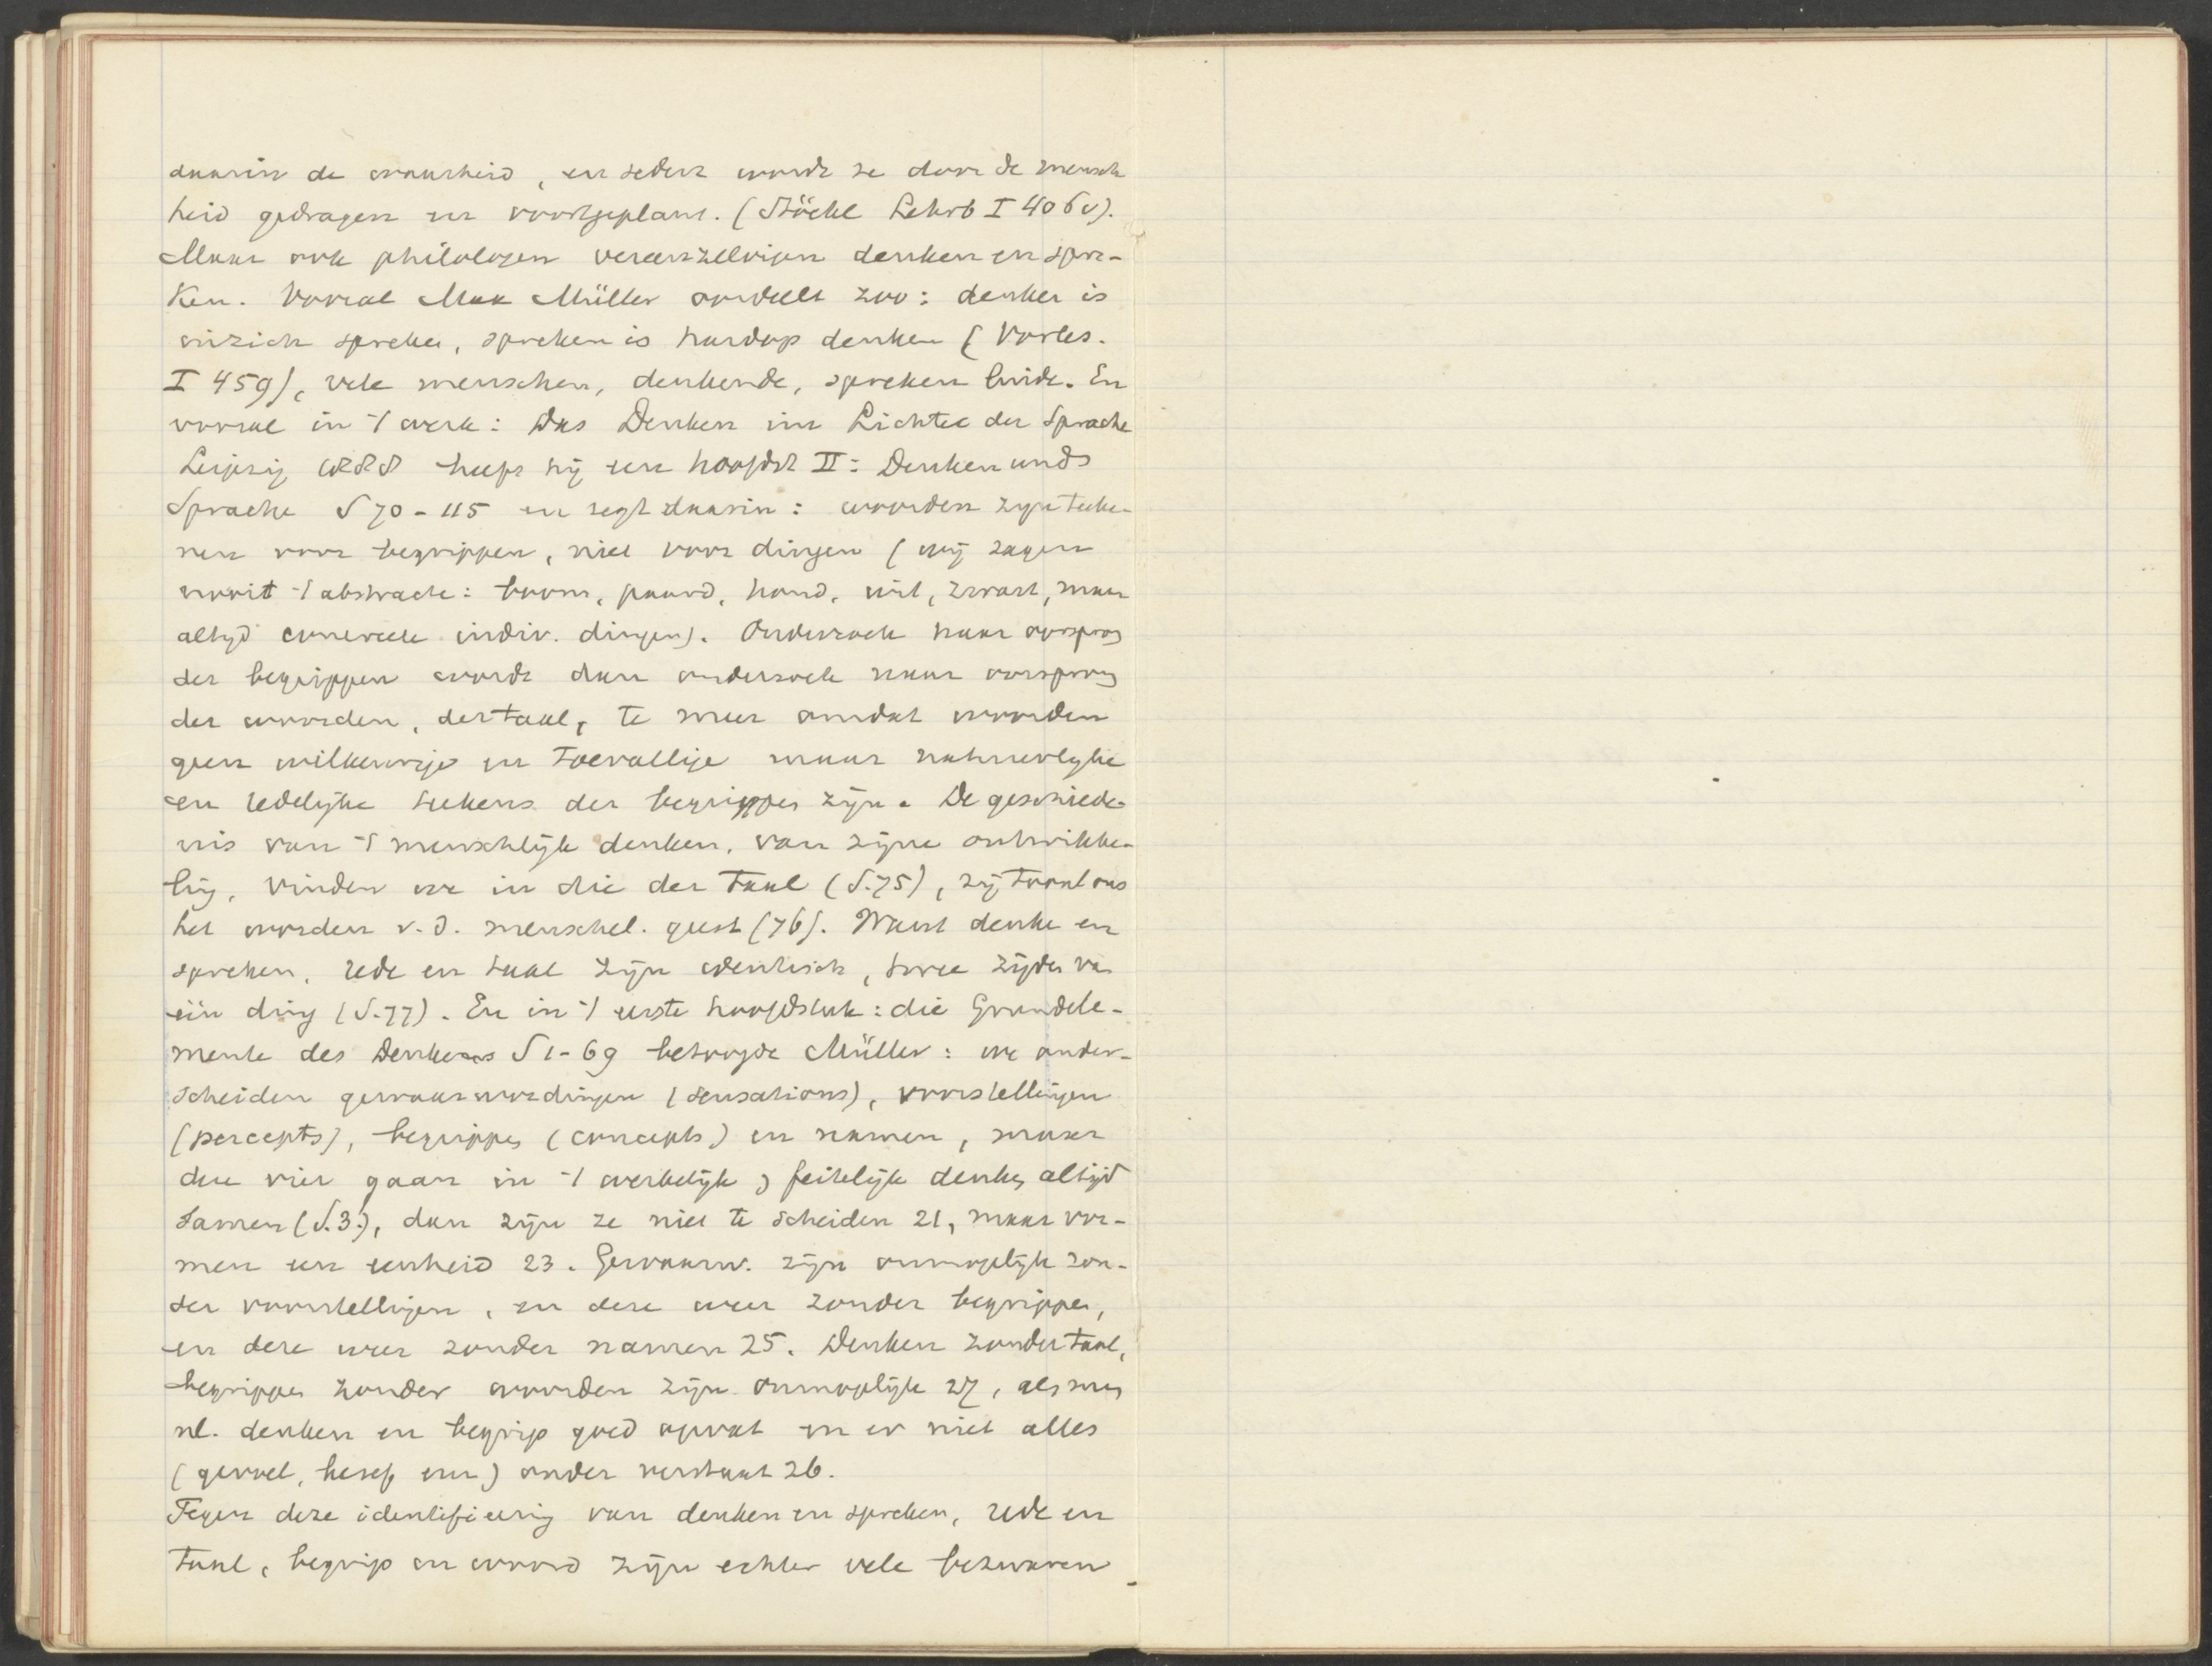 daarin de waarheid, en sedert wordt ze door de mensch
heid gedragen en voortgeplant. (Stöckl Lehrb I 406v).
Maar ook philologen vereenzelvigen denken en spre-
ken. Vooral Max Müller oordeelt zoo: denken is
inzich spreken, spreken is hardop denken (Vorles.
I 459), vele menschen, denkende, spreken luide. En
vooral in 't werk: Das Denken im Lichte der Sprache
Leipzig 1888 heeft hij een hoofdst II: Denken und
Sprache S 70-115 en zegt daarin: woorden zijn teeke-
nen voor begrippen, niet voor dingen (wij zagen
nooit 't abstracte: boom, paard, hond, wit, zwart, maar
altijd concreete indiv. dingen). Onderzoek naar oorsprong
der begrippen wordt dan onderzoek naar oorsprong
der woorden, der taal, te meer omdat woorden
geen willekeurige en toevallige maar natuurlijke
en redelijke teekens der begrippen zijn. De geschiede-
nis van 't menschlijk denken, van zijne ontwikke-
ling, vinden we in die der taal (S.75), zij toont ons
het worden v.d. menschel. geest (76). Want denken en
spreken, rede en taal zijn identisch, twee zijden van
één ding (S.77). En in 't eerste hoofdstuk: die Grundele-
mente des Denkens S 1-69 betoogde Müller: we onder-
scheiden gewaarwordingen (sensations), voorstellingen
(percepts), begrippen (concepts) en namen, maar
deze vier gaan in 't werkelijk, feitelijk denken altijd
samen (S.3.), dan zijn ze niet te scheiden 21, maar vor-
men een eenheid 23. Gewaarw. zijn onmogelijk zon-
der voorstellingen, en deze weer zonder begrippen,
en deze weer zonder namen 25. Denken zonder taal,
begrippen zonder woorden zijn onmogelijk 27, als men
nl. denken en begrip goed opvat en er niet alles
(gevoel, besef enz) onder verstaat 26.
Tegen deze identifieering van denken en spreken, rede en
taal, begrip en woord zijn echter vele bezwaren.